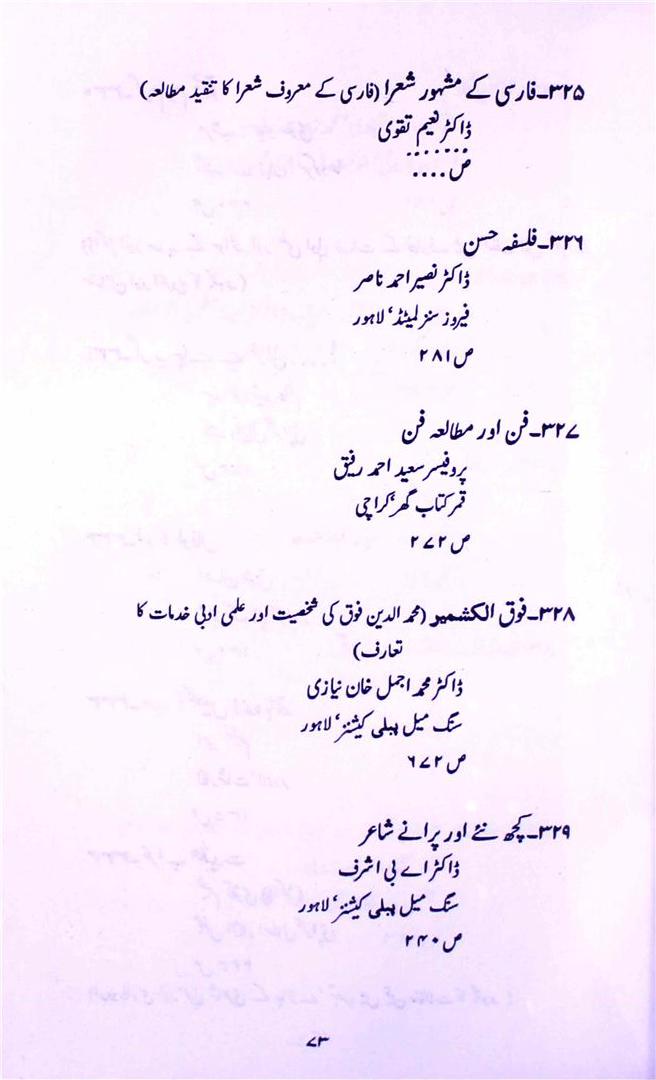 ۳۲۵۔فارسی کے مشہور شعرا (فارسی کے معروف شعرا کا تنقید مطالعہ)
ڈاکٹر نعیم تقوی
.......
ص....
۳۲۶۔فلسفہ حسن
ڈاکٹر نصیر احمد ناصر
فیروز سنز لمیٹڈ‘ لاہور
ص ۲۸۱
۳۲۷۔فن اور مطالعہ فن
پروفیسر سعید احمد رفیق
قمر کتاب گھر‘ کراچی
ص ۲۷۲
۳۲۸۔فوق الکشمیر (محمد الدین فوق کی شخصیت اور علمی ادبی خدمات کا
تعارف)
ڈاکٹر محمد اجمل خان نیازی
سنگ میل پبلی کیشنز‘ لاہور
ص ۶۷۲
۳۲۹۔کچھ نئے اور پرانے شاعر
ڈاکٹر اے بی اشرف
سنگ میل پبلی کیشنز‘ لاہور
ص ۲۴۰
۷۳